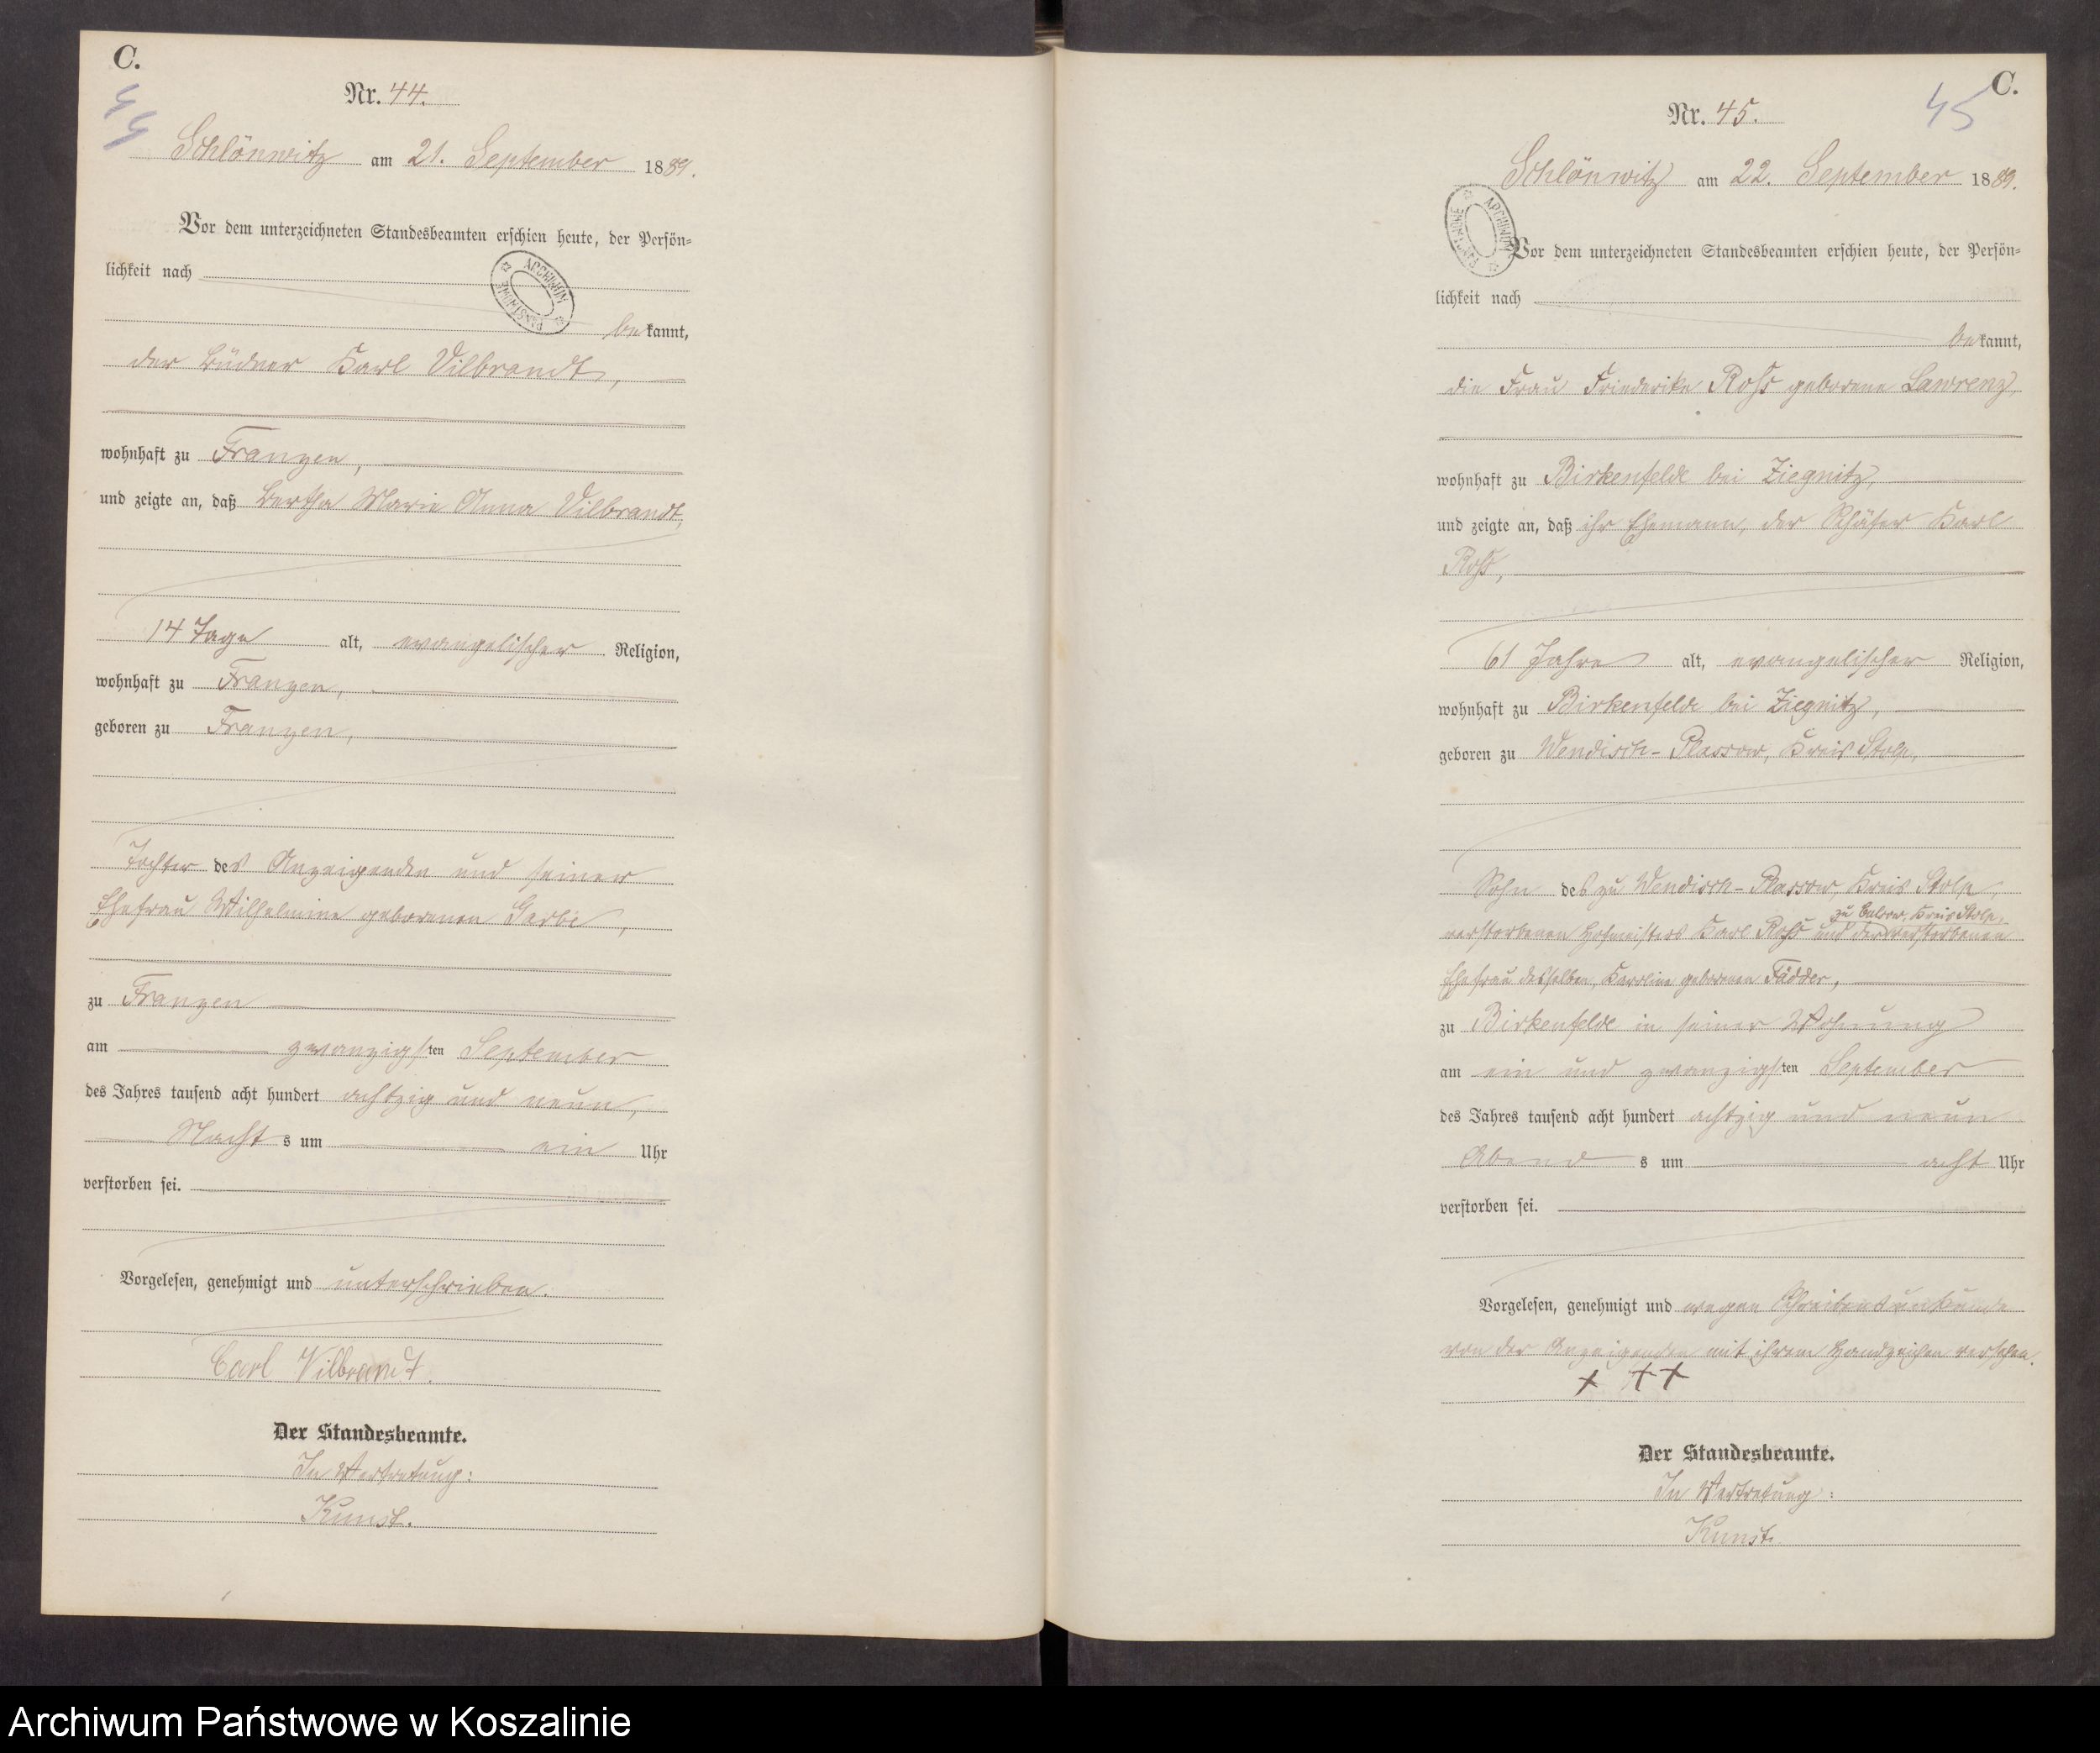 C.
44
Nr. 44.
Schlönwitz am 21. September 1889.
Vor dem unterzeichneten Standesbeamten erschien heute, der Persön-
lichkeit nach
bekannt,
der Büdner Karl Vilbrandt,
wohnhaft zu Franzen,
und zeigte an, daß Bertha Marie Anna Vilbrandt,
14 Tage alt, evangelischer Religion,
wohnhaft zu Franzen,
geboren zu Franzen,
Tochter des Anzeigenden und seiner
Ehefrau Wilhelmine geborenen Garbe,
zu Franzen
am zwanzigsten September
des Jahres tausend acht hundert achtzig und neun,
Nachts um ein Uhr
verstorben sei.
Vorgelesen, genehmigt und unterschrieben.
Carl Vilbrandt.
Der Standesbeamte.
In Vertretung:
Kunst.
C.
45
Nr. 45.
Schlönwitz am 22. September 1889.
Vor dem unterzeichneten Standesbeamten erschien heute, der Persön-
lichkeit nach
bekannt,
die Frau Friederike Roß geborene Lawrenz,
wohnhaft zu Birkenfelde bei Ziegnitz,
und zeigte an, daß ihr Ehemann, der Schäfer Karl
Roß,
61 Jahre alt, evangelischer Religion,
wohnhaft zu Birkenfelde bei Ziegnitz,
geboren zu Wendisch-Plassow, Kreis Stolp,
Sohn des zu Wendisch-Plassow, Kreis Stolp,
zu Kreis Stolp,
verstorbenen Hofmeisters Karl Roß und der verstorbenen
Ehefrau desselben, Karoline geborenen Fädder,
zu Birkenfelde in seiner Wohnung
am ein und zwanzigsten September
des Jahres tausend acht hundert achtzig und neun
Abends um acht Uhr
verstorben sei.
Vorgelesen, genehmigt und wegen Schreibensunkunde
von der Anzeigenden mit ihrem Handzeichen versehen.
+ ++
Der Standesbeamte.
In Vertretung:
Kunst.
ARCHIWUM PAŃSTWOWE
ARCHIWUM PAŃSTWOWE
Archiwum Państwowe w Koszalinie